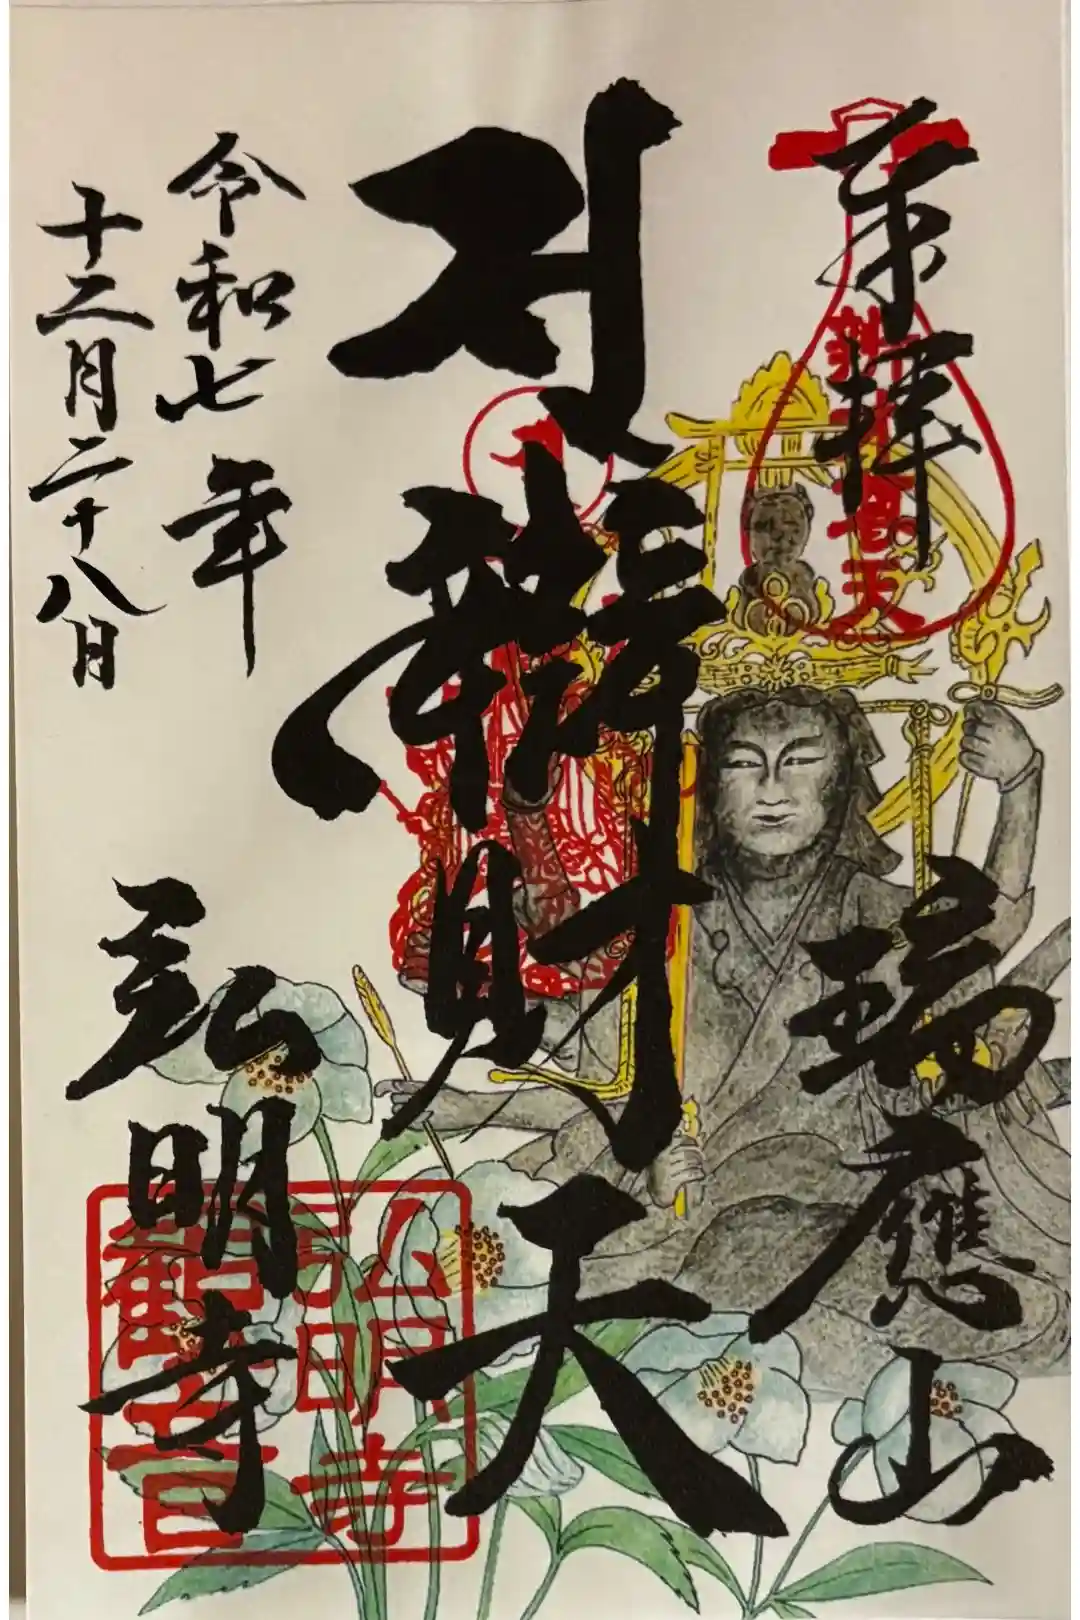 奉拝
瑞應山
辨財天
令和七年
十二月二十八日
弘明寺
弘明寺
觀音